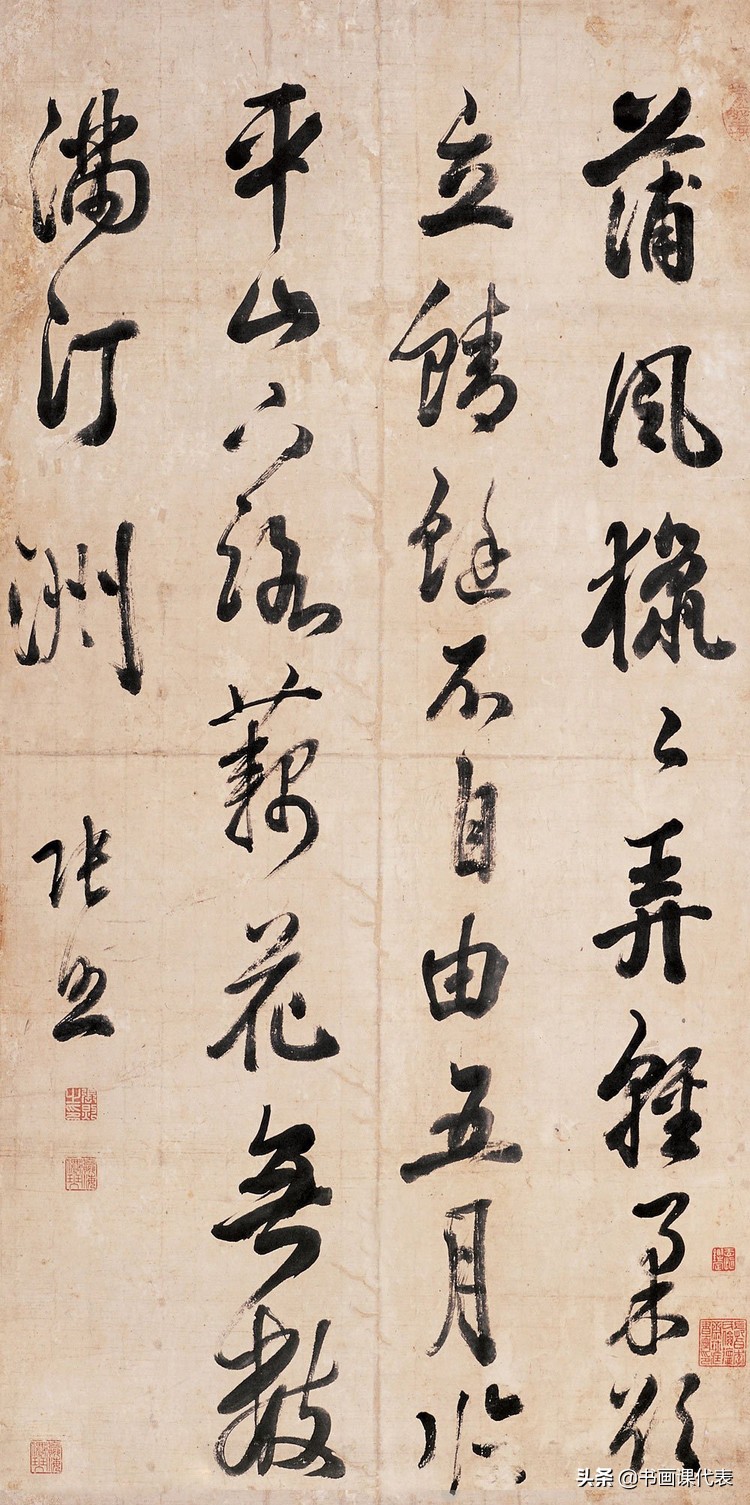 蒲風獵〻弄輕柔欲
立蜻蜓不自由五月臨
平山下路藕花無數
滿汀洲
張照
頭条 @书画课代表